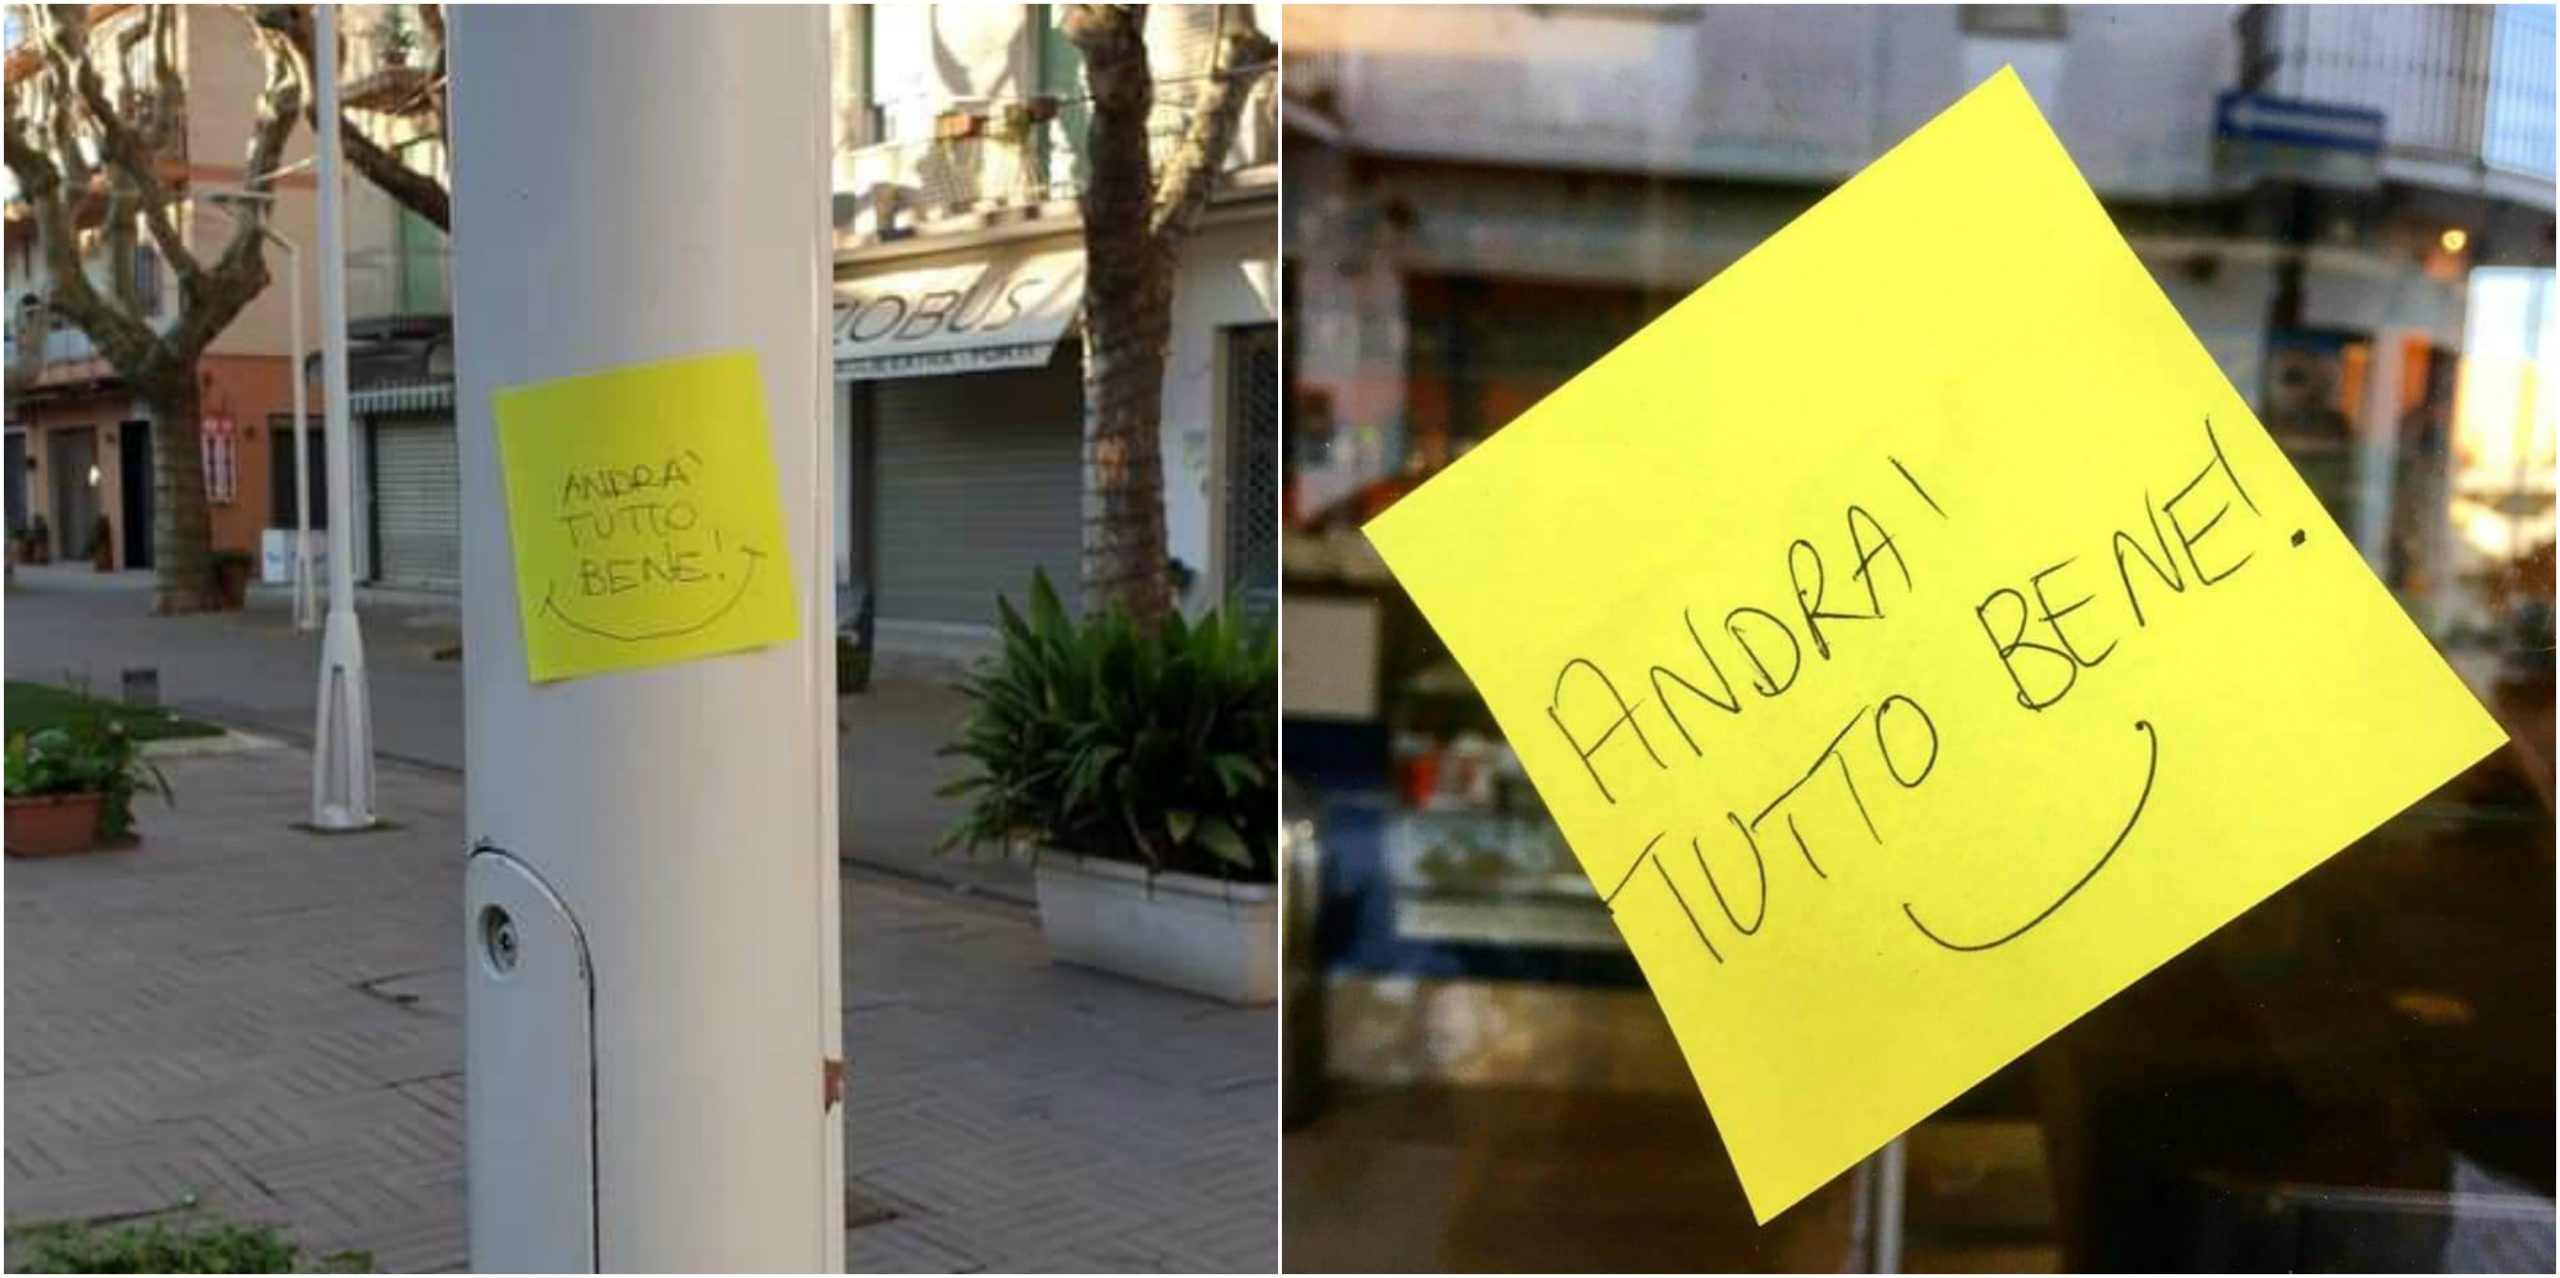 ANDRA'
TUTTO
BENE!
ANDRA'
TUTTO BENE!